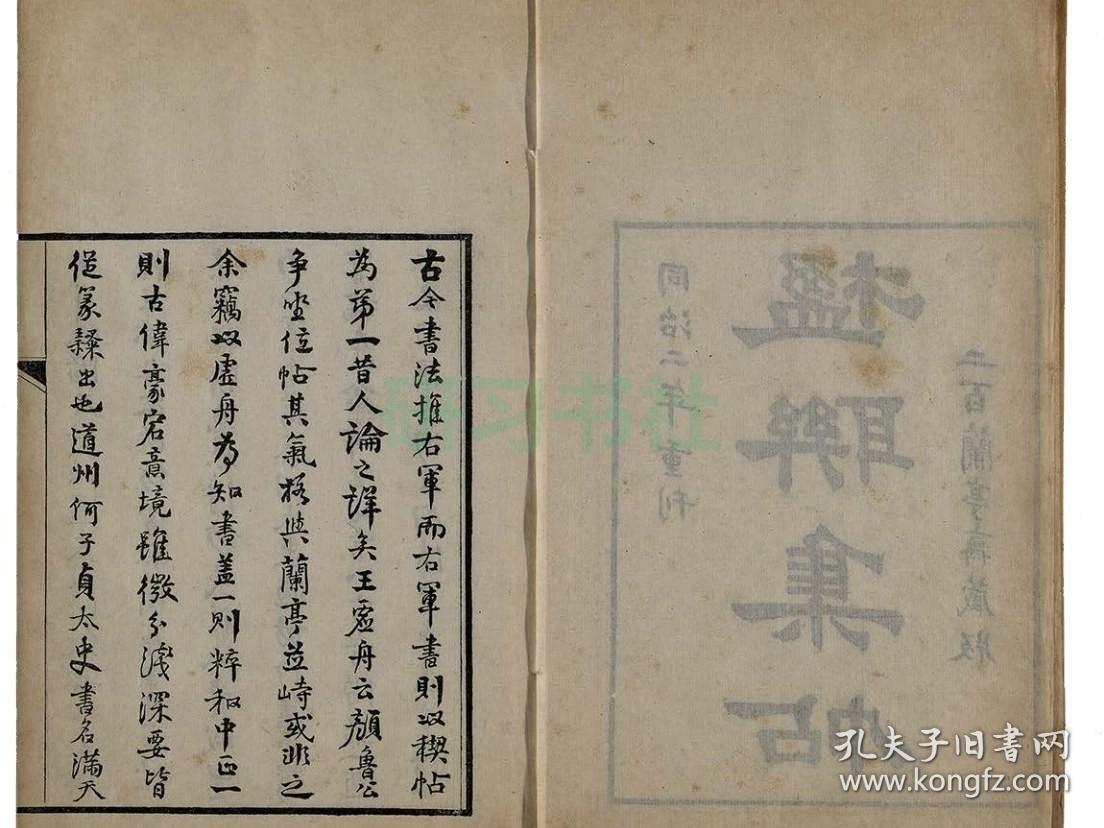 二百蘭亭齋藏版
楹聯集帖
同治二年重刊
古今書法推右軍而右軍書則以稧帖
為第一昔人論之詳矣王虛舟云顏魯公
争坐位帖其氣格與蘭亭並峙或非之
余竊以虛舟為知書蓋一則粹和中正一
則古偉豪宕意境雖微分淺深要皆
從篆隸出也道州何子貞太史書名滿天
研习书社
孔夫子旧书网
www.kongfz.com